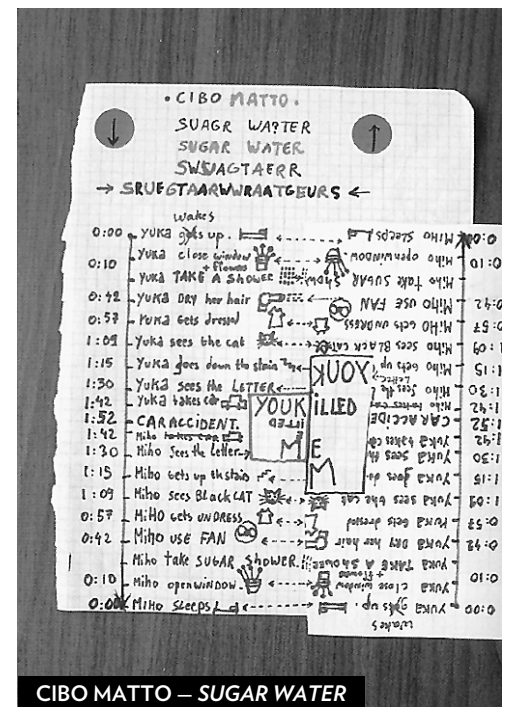 • CIBO MATTO •
SUAGR WA?TER
SUGAR WATER
SWSUAGTAERR
→ SRUEGTAARWWRAATGEURS ←
wakes
0:00 Yuka gets up.
Yuka close window
+ flowers
0:10
Yuka TAKE A SHOWER
0:42 Yuka DRY her hair
0:57 Yuka Gets dressed
1:09 Yuka sees the cat
1:15 Yuka goes down the stain
1:30 Yuka sees the LETTER
1:42 Yuka takes car
1:52 CAR ACCIDENT.
1:42 Miho takes car
1:30 Miho Sees the Letter
1:15 Miho Gets up thstain
1:09 Miho sees BlacK CAT
0:57 MiHO Gets UNDRESS
0:42 Miho USE FAN
Miho take SUGAR SHOWER.
0:10 Miho open window
0:00 Miho SLEEPS
YOUK
ILLED
M E
YOUK
iLLED
E
M
0:00 Miho SLEEPS
0:10 Miho open window
Miho take SUGAR Show
0:42 MiHO USE FAN
0:57 MiHO Gets UNDRESS
1:09 Miho sees BLACK CAT
1:15 Miho Gets up
1:30 Miho Sees the
Letter
1:42 Miho takes car
1:52 CAR ACCIDE
1:42 Yuka takes ca
1:30 Yuka sees th
1:15 Yuka goes do
1:09 Yuka sees the cat
0:57 Yuka Gets dressed
0:42 Yuka DRY her hair
Yuka TAKE A SHOWER
+ flowers
0:10 Yuka close window
0:00 Yuka gets up.
wakes
CIBO MATTO – SUGAR WATER